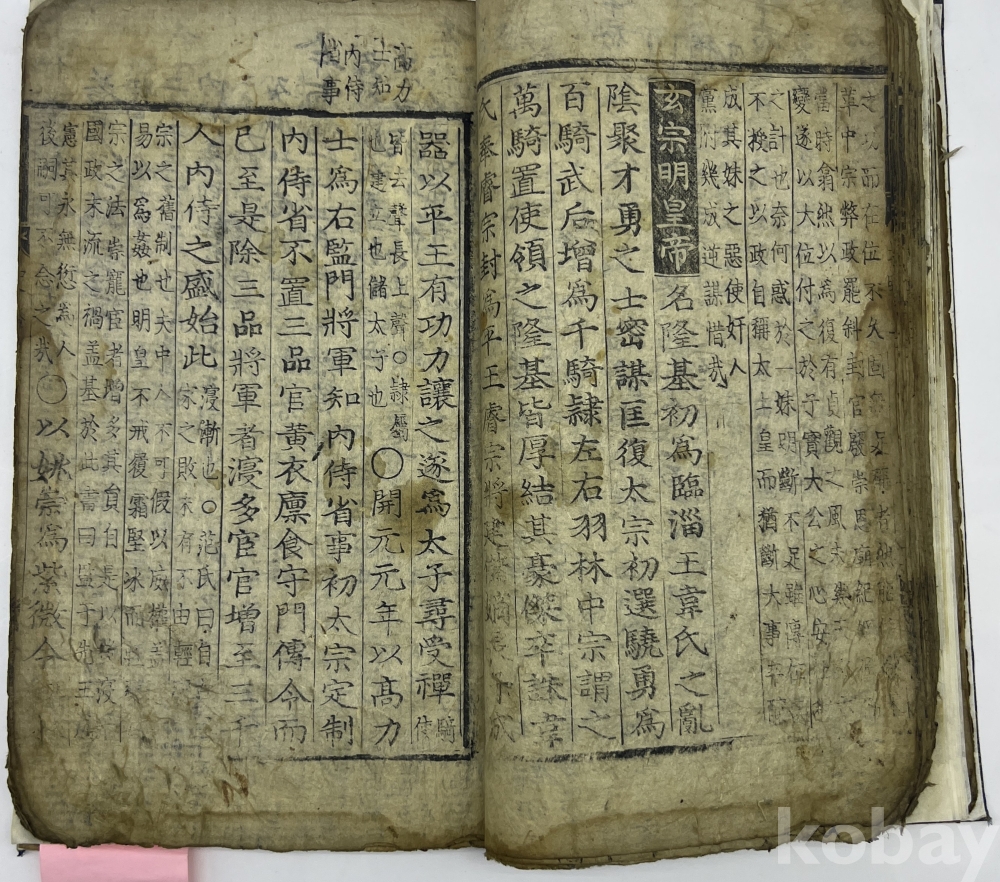 革中宗弊政罷斜封官
當時翕然以爲復有貞觀之風
變遂以大位付之於子實大公之心安
之計也奈何惑於一妹明斷不足雖傳
不授之以政自稱太上皇而猶斷大事
成其妹之惡使奸人
黨附幾成逆謀惜哉
玄宗明皇帝 名隆基初爲臨淄王韋氏之亂
陰聚才勇之士密謀匡復太宗初選驍勇爲
百騎武后增爲千騎隷左右羽林中宗謂之
萬騎置使領之隆基皆厚結其豪傑卒誅韋
氏奉睿宗封爲平王睿宗將建
高力
士知
內侍
省事
器以平王有功力讓之遂爲太子尋受禪騎使
皆去聲長上聲○隷屬
也建立也儲太子也
○開元元年以高力
士爲右監門將軍知內侍省事初太宗定制
內侍省不置三品官黃衣廩食守門傳令而
已至是除三品將軍者寖多宦官增至三千
人內侍之盛始此
寖漸也○范氏曰自
家之敗未有不由輕
宗之舊制也夫中人不可假以威權
易以爲姦也明皇不戒履霜堅冰而
宗之法崇寵宦者增多其員自是以
國政末流之禍盖基於此書曰監于先王
憲其永無愆爲人
後嗣可不念之哉
○以姚崇爲紫微令
kobay